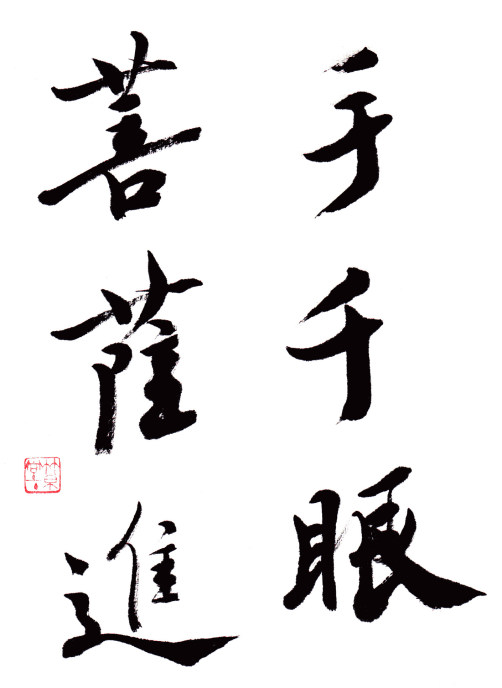 手千眼
菩薩進